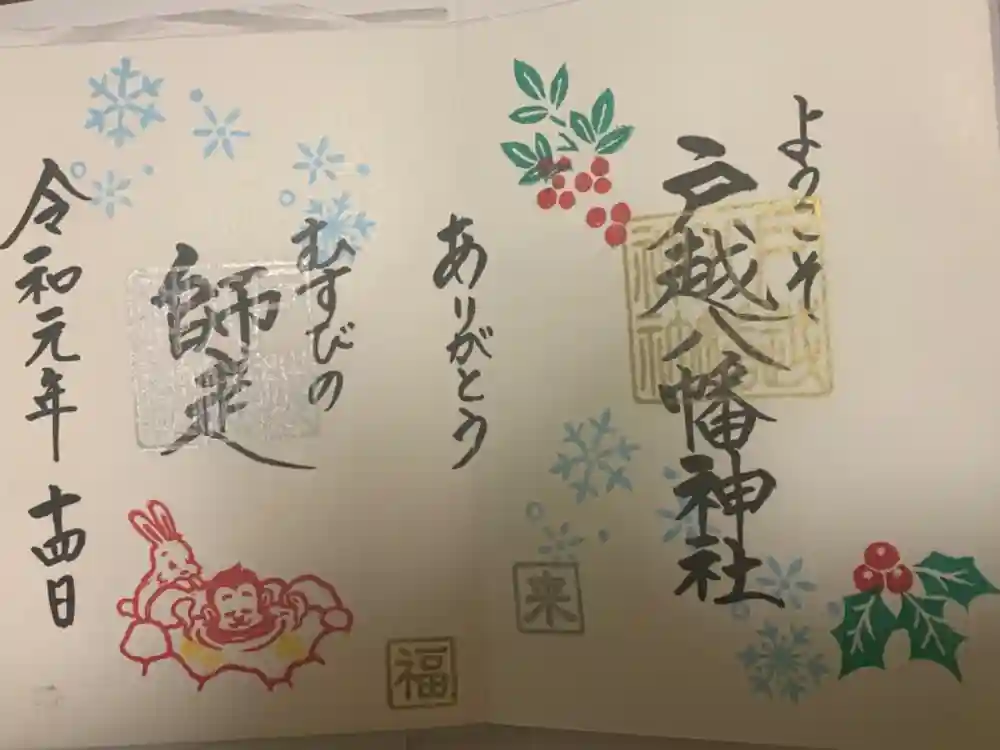 ようこそ
戸越八幡神社
来
ありがとう
むすびの
師走
福
令和元年 十四日